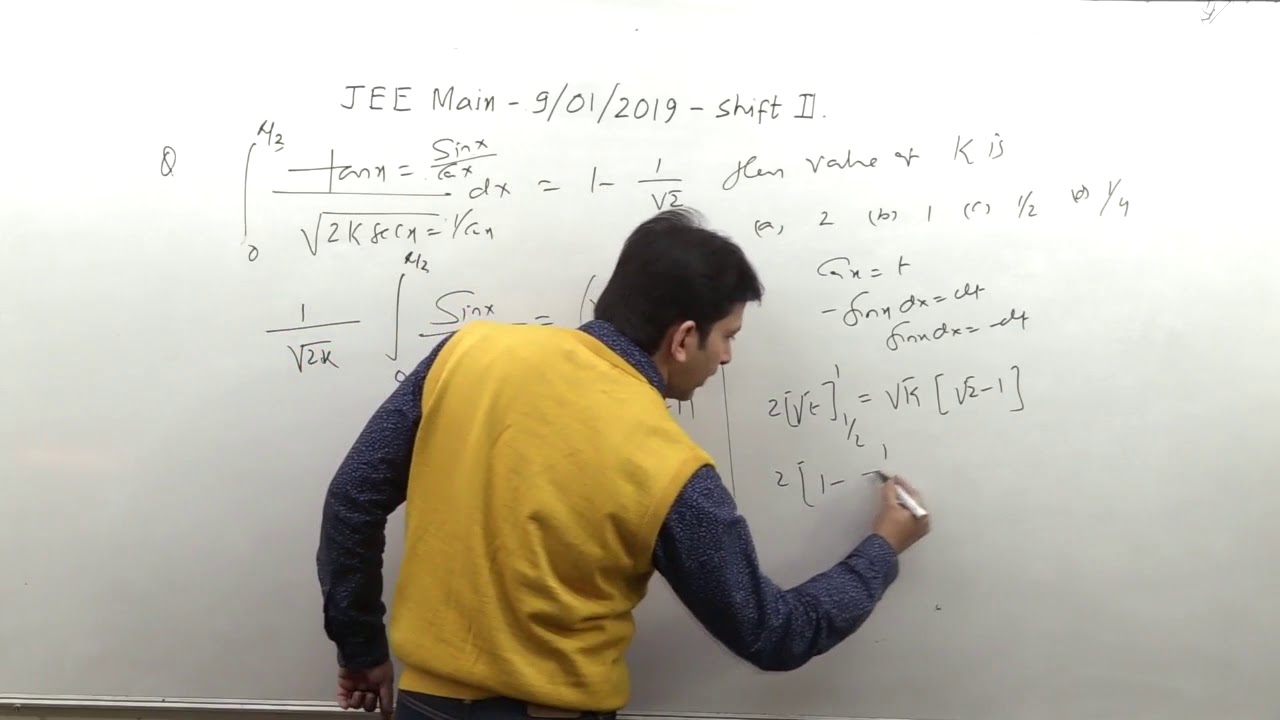 JEE Main - 9/01/2019 - Shift II.
Q ∫₀^{π/3} tanx = Sinx/Cosx / √2K secx = 1/Cosx dx = 1 - 1/√2 then value of K is
(a, 2 (b) 1 (c) 1/2 (d) 1/4
Cosx = t
- Sinx dx = dt
Sinx dx = -dt
1/√2K ∫₀^{π/3} Sinx = (
2[√t]^1_{1/2} = √K [√2-1]
2[1- 1